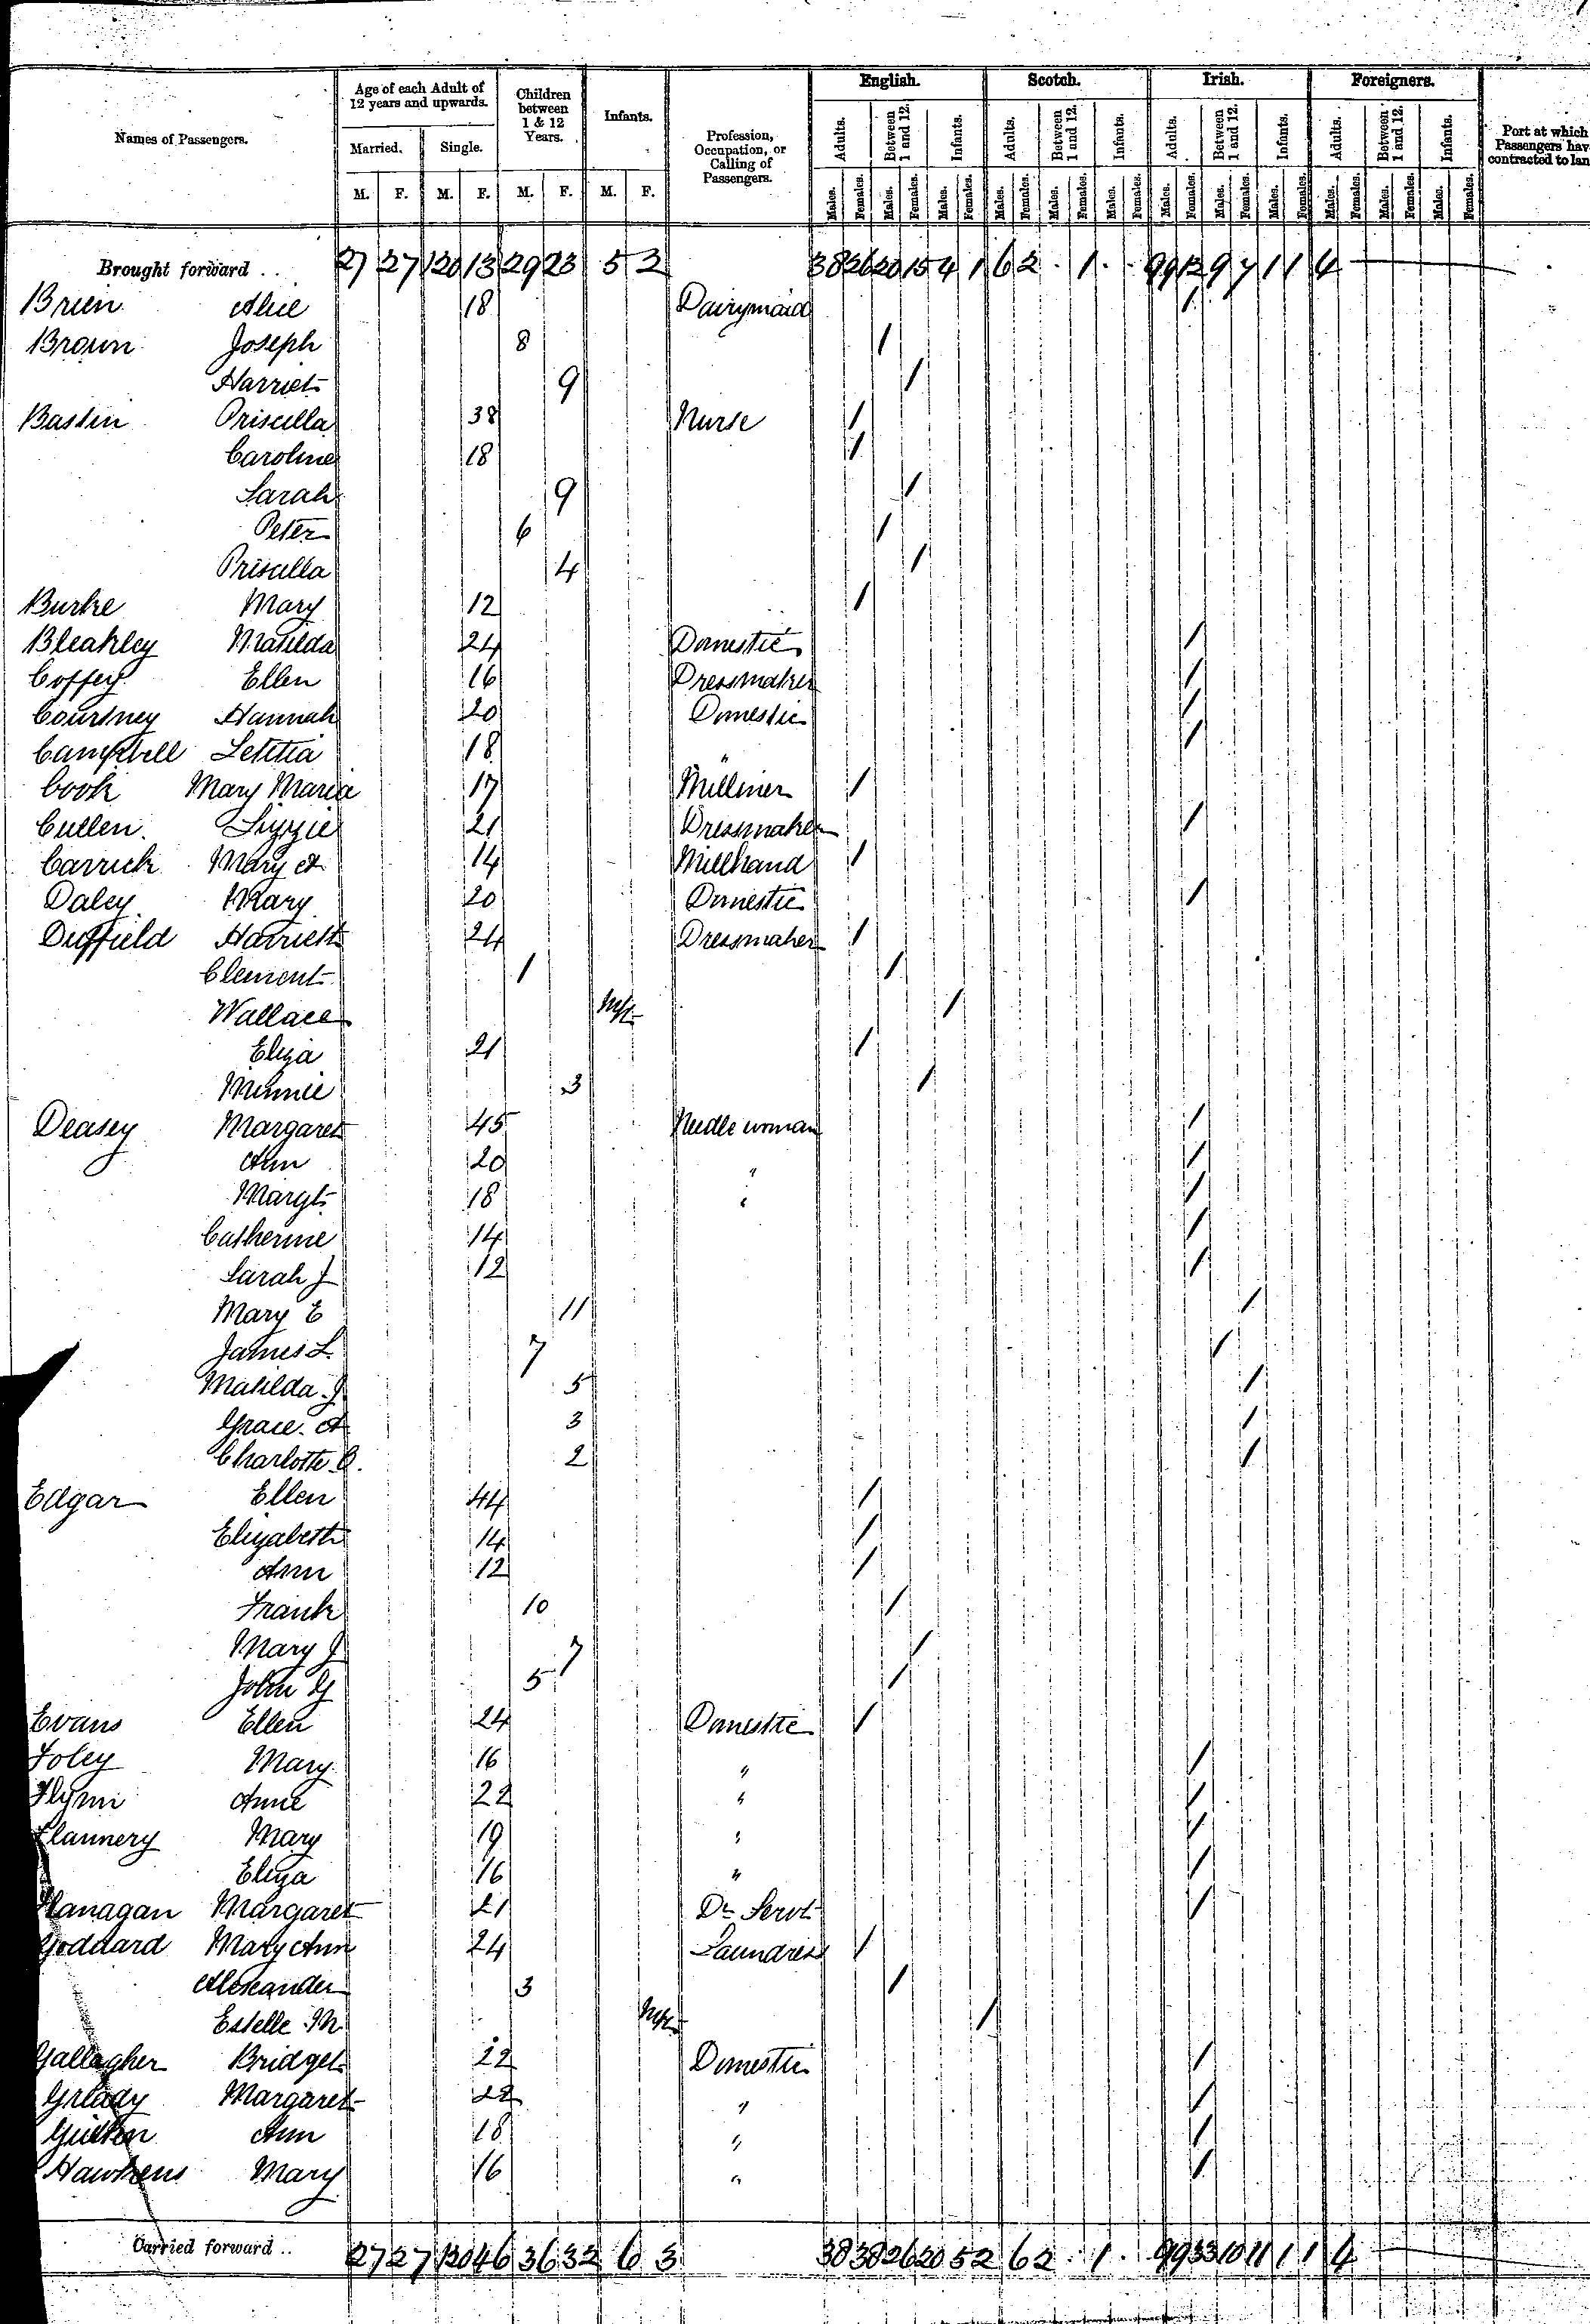 Names of Passengers. Age of each Adult of 12 years and upwards. Married. M. F. Single. M. F. Children between 1 & 12 Years. M. F. Infants. M. F. Profession, Occupation, or Calling of Passengers. English. Adults. Males. Females. Between 1 and 12. Males. Females. Infants. Males. Females. Scotch. Adults. Males. Females. Between 1 and 12. Males. Females. Infants. Males. Females. Irish. Adults. Males. Females. Between 1 and 12. Males. Females. Infants. Males. Females. Foreigners. Adults. Males. Females. Between 1 and 12. Males. Females. Infants. Males. Females. Port at which Passengers hav contracted to lan
Brought forward .. 27 27 120 13 29 23 5 2 38 26 20 15 4 1 6 2 . 1 . . 99 12 9 7 1 1 4
Brien Alice 18 Dairymaid 1
Brown Joseph 8 1
Harriet 9 1
Bastin Priscilla 38 Nurse 1
Caroline 18 1
Sarah 9 1
Peter 6 1
Priscilla 4 1
Burke Mary 12 1
Bleakley Matilda 24 Domestic 1
Coffey Ellen 16 Dressmaker 1
Courtney Hannah 20 Domestic 1
Campbell Letitia 18 " 1
Cook Mary Maria 17 Milliner 1
Cullen Lizzie 21 Dressmaker 1
Carrick Mary A 14 Millhand 1
Daley Mary 20 Domestic 1
Duffield Harriett 24 Dressmaker 1
Clement 1 1
Wallace 1
Eliza 21 1
Minnie 3 1
Deasey Margaret 45 Needle woman 1
Ann 20 " 1
Margt 18 " 1
Catherine 14 1
Sarah J 12 1
Mary E 11 1
James L. 7 1
Matilda J 5 1
Grace A 3 1
Charlotte 2 1
Edgar Ellen 44 1
Elizabeth 14 1
Ann 12 1
Frank 10 1
Mary J 7 1
John G 5 1
Evans Ellen 24 Domestic 1
Foley Mary 16 " 1
Flynn Anne 22 " 1
Flannery Mary 19 " 1
Eliza 16 " 1
Flanagan Margaret 21 Dc Servt 1
Goddard Mary Ann 24 Laundress 1
Alexander 3 1
Estelle M. 1
Gallagher Bridget 22 Domestic 1
Gready Margaret 22 " 1
Ann 18 " 1
Hawkens Mary 16 " 1
Carried forward .. 27 27 120 46 36 32 6 3 38 38 26 20 5 2 6 2 . 1 . 99 33 10 11 1 1 4